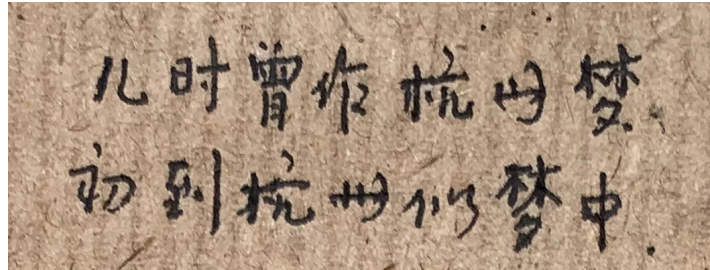 儿时曾作杭州梦、
初到杭州似梦中.